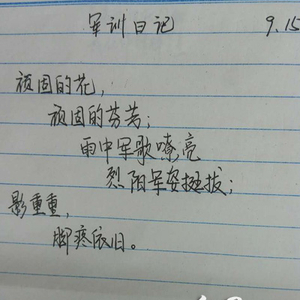 军训日记 9.15
顽固的花，
顽固的芬芳；
雨中军歌嘹亮
烈阳军姿挺拔；
影重重，
脚疼依旧。